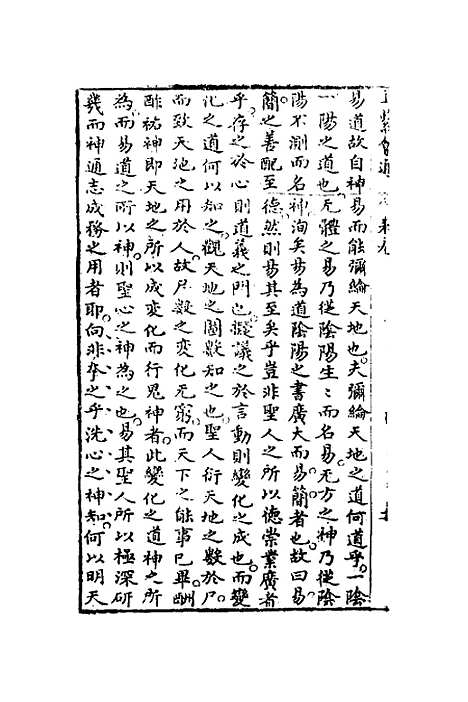 易道故自神易而能彌綸天地也夫彌綸天地之道何道乎一陰
一陽之道也无體之易乃從陰陽生生而名易无方之神乃從陰
陽不測而名神洵矣易為道陰陽之書廣大而易簡者也故曰易
簡之善配至德然則易其至矣乎豈非聖人之所以德崇業廣者
乎存之於心則道義之門也擬議之於言動則變化之成也而變
化之道何以知之觀天地之闔數知之也聖人衍天地之數於尸
而致天地之用於人故尸數之變化无窮而天下之能事巳畢酬
酢祐神即天地之所以成變化而行鬼神者此變化之道神之所
為而易道之所以神則聖心之神為之也易其聖人所以極深研
幾而神通志成務之用者耶向非本之乎洗心之神知何以明天